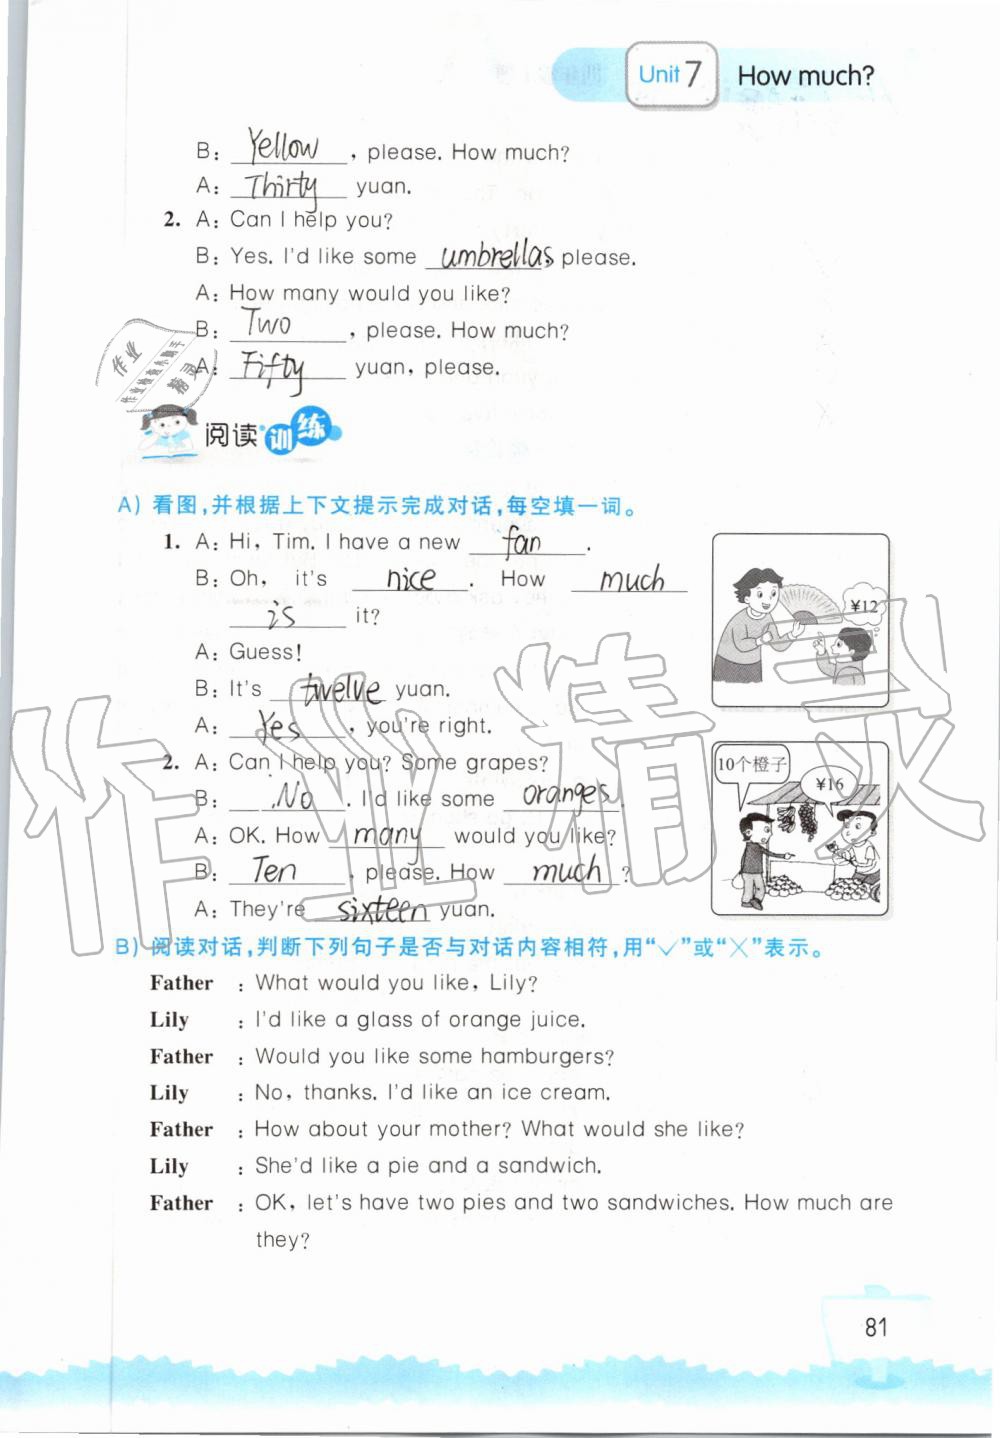 Unit 7 How much?
B: Yellow, please. How much?
A: Thirty yuan.
2. A: Can I help you?
B: Yes. I'd like some umbrellas, please.
A: How many would you like?
B: Two, please. How much?
A: Fifty yuan, please.
阅读训练
A) 看图,并根据上下文提示完成对话,每空填一词。
1. A: Hi, Tim. I have a new fan.
B: Oh, it's nice. How much
is it?
¥12
A: Guess!
B: It's twelve yuan.
A: Yes, you're right.
2. A: Can I help you? Some grapes?
10个橙子
¥16
B: No. I'd like some oranges.
A: OK. How many would you like?
B: Ten, please. How much?
A: They're sixteen yuan.
B) 阅读对话,判断下列句子是否与对话内容相符,用“✓”或“╳”表示。
Father: What would you like, Lily?
Lily: I'd like a glass of orange juice.
Father: Would you like some hamburgers?
Lily: No, thanks. I'd like an ice cream.
Father: How about your mother? What would she like?
Lily: She'd like a pie and a sandwich.
Father: OK, let's have two pies and two sandwiches. How much are
they?
81
作业精灵